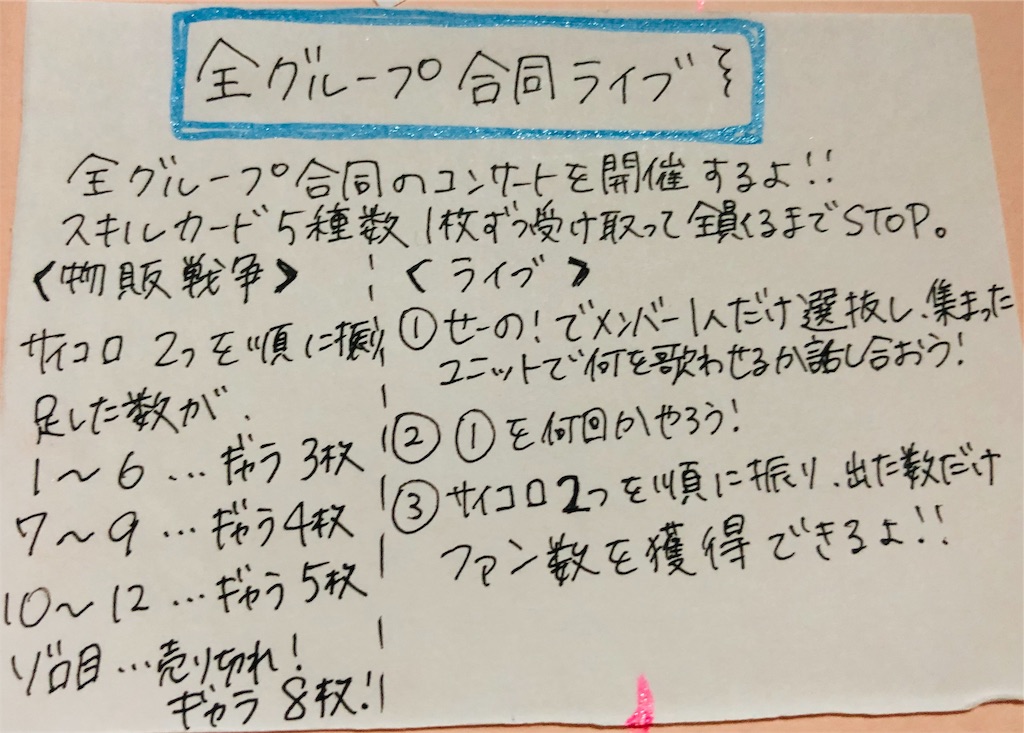 全グループ合同ライブ
全グループ合同のコンサートを開催するよ!!
スキルカード5種数1枚ずつ受け取って全員くるまでSTOP。
<物販戦争>
サイコロ2つを順に振り
足した数が、
1〜6…ギャラ3枚
7〜9…ギャラ4枚
10〜12…ギャラ5枚
ゾロ目…売り切れ!
ギャラ8枚!
<ライブ>
①せーの!でメンバー1人だけ選抜し、集まった
ユニットで何を歌わせるか話し合おう!
②①を何回かやろう!
③サイコロ2つを順に振り、出た数だけ
ファン数を獲得できるよ!!